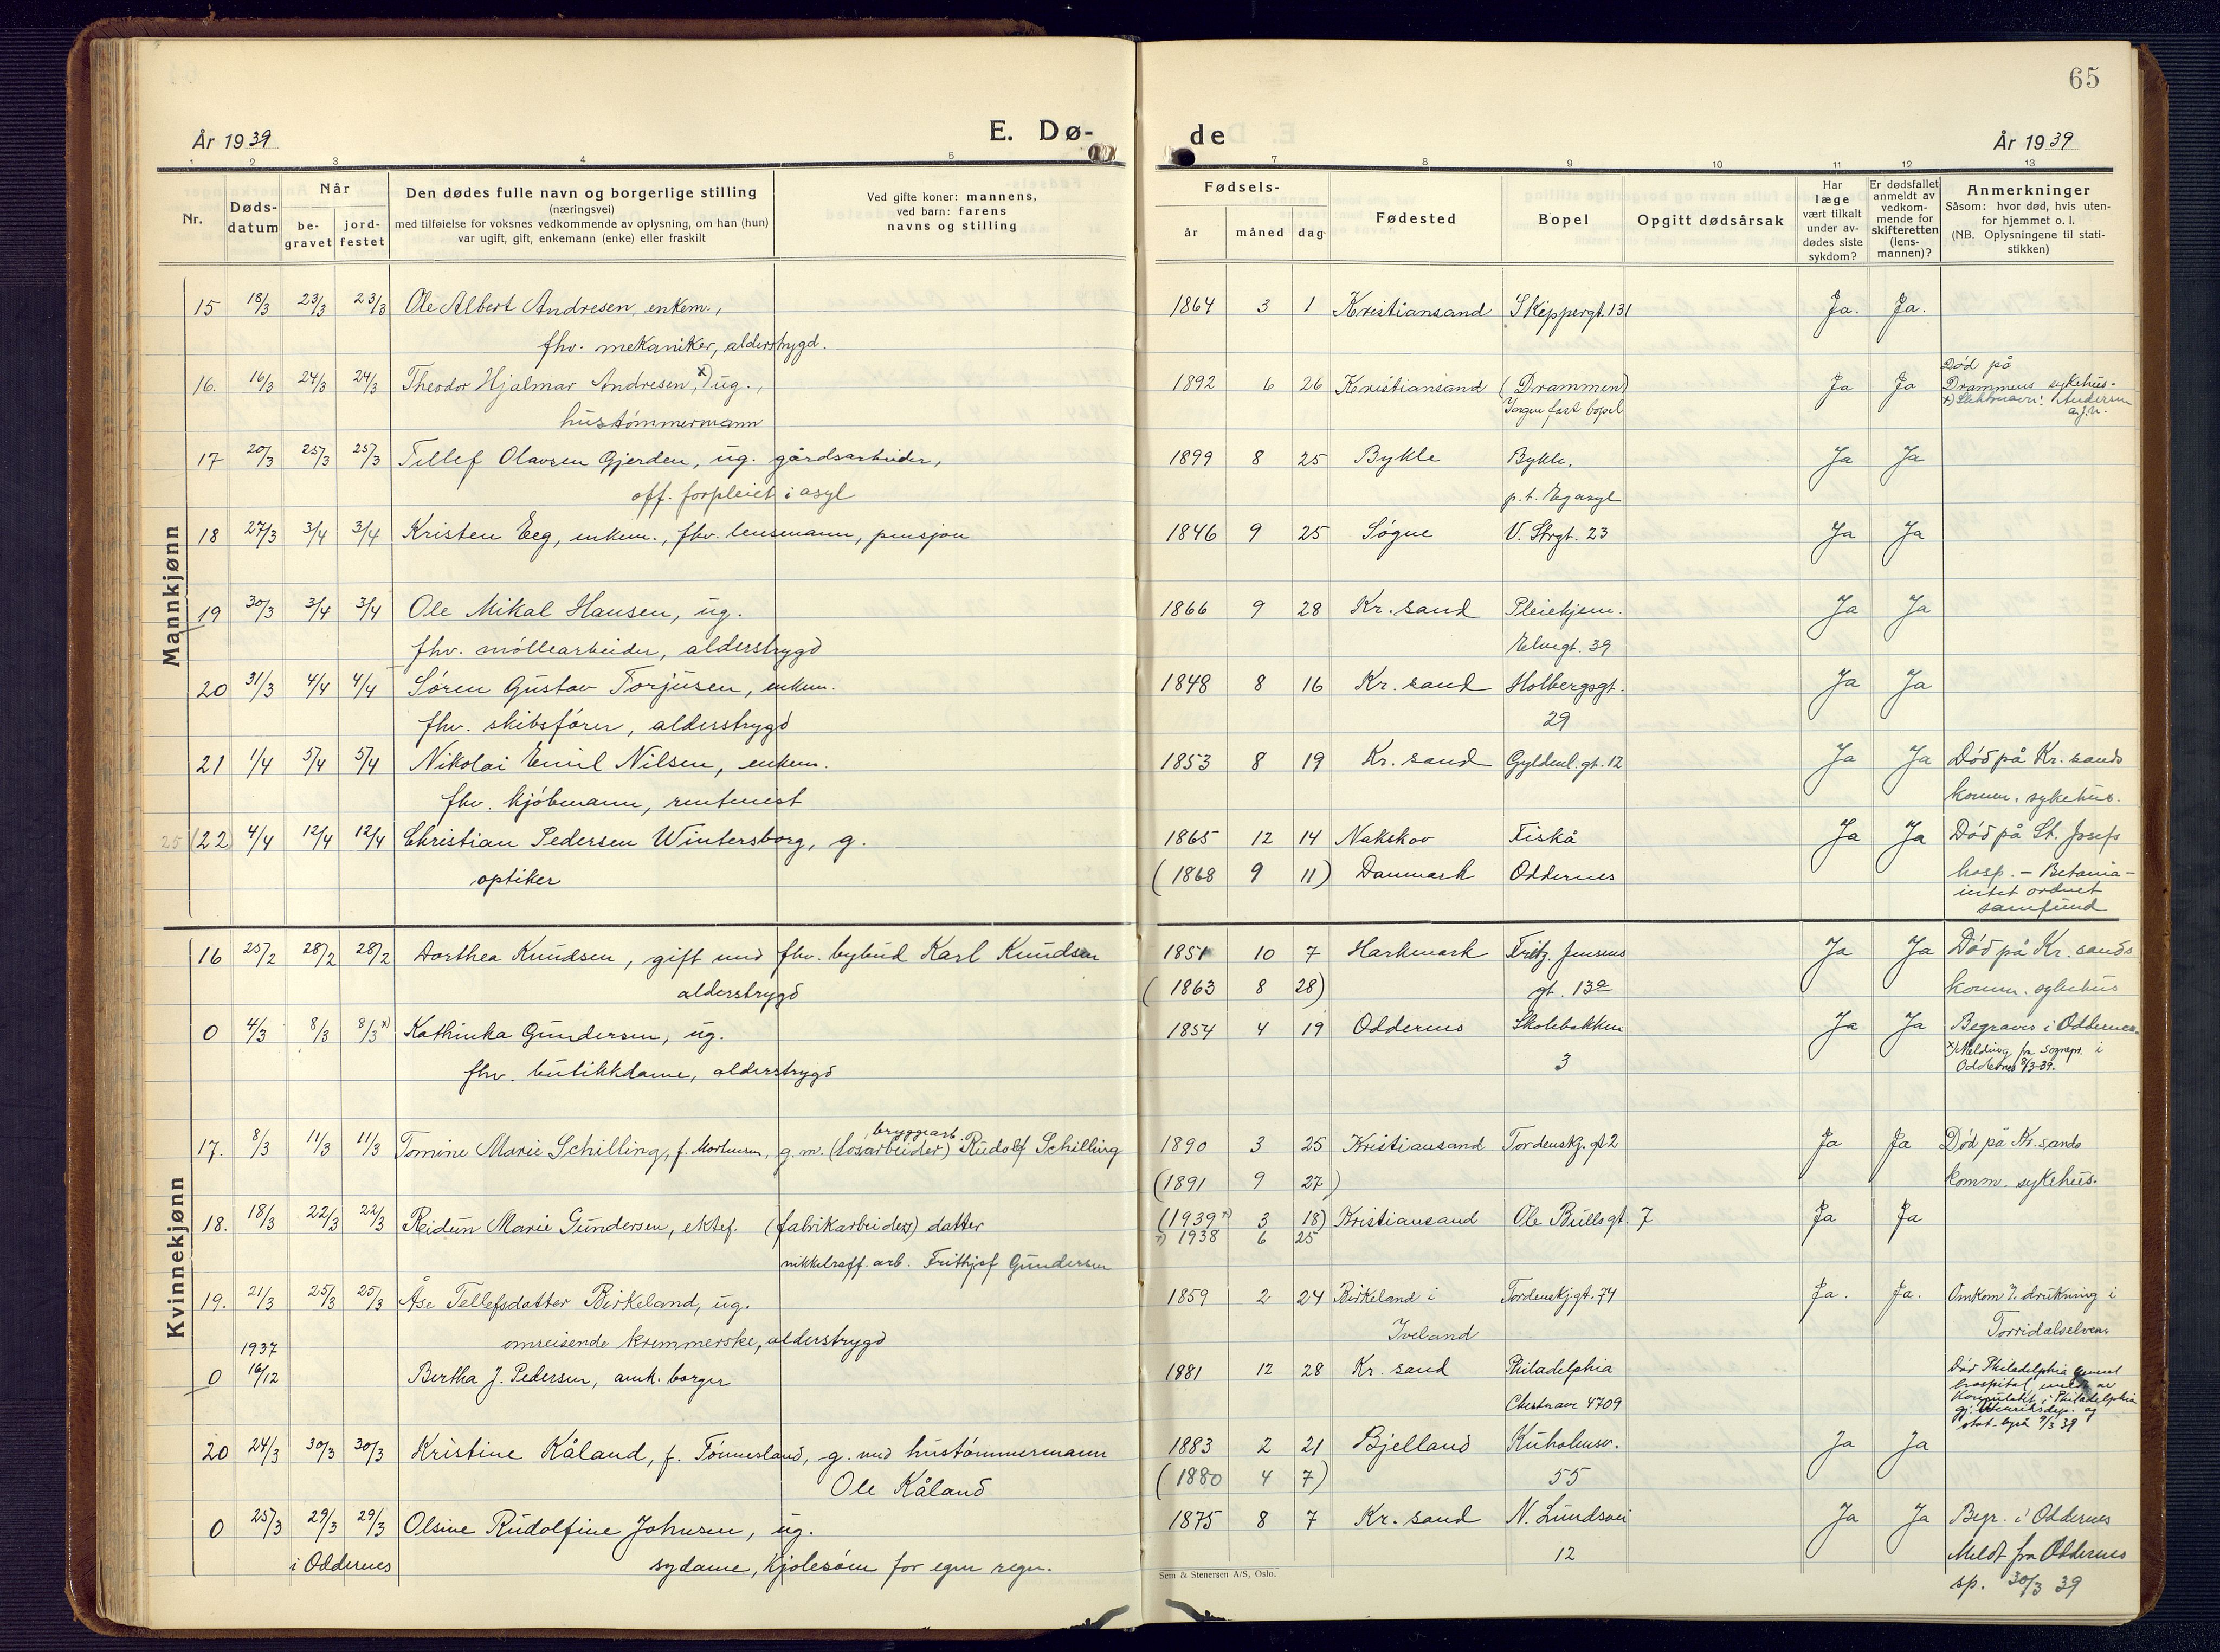 65
År 1939
E. Dø-
de
År 1939
1 2 3 4 5 7 8 9 10 11 12 13
Nr.
Døds-
datum
Når
be-
gravet
jord-
festet
Den dødes fulle navn og borgerlige stilling
(næringsvei)
med tilføielse for voksnes vedkommende av oplysning, om han (hun)
var ugift, gift, enkemann (enke) eller fraskilt
Ved gifte koner: mannens,
ved barn: farens
navns og stilling
Fødsels-
år måned dag
Fødested
Bopel
Opgitt dødsårsak
Har
læge
vært tilkalt
under av-
dødes siste
sykdom?
Er dødsfallet
anmeldt av
vedkom-
mende for
skifteretten
(lens-
mannen)?
Anmerkninger
Såsom: hvor død, hvis uten-
for hjemmet o. l.
(NB. Oplysningene til stati-
stikken)
Mannkjønn
15 18/3 23/3 23/3 Ole Albert Andresen, enkem., 1864 3 1 Kristiansand Skippergt. 131 Ja. Ja.
fhv. mekaniker, alderstrygd.
16. 16/3 24/3 24/3 Theodor Hjalmar Andresen, x) ug., 1892 6 26 Kristiansand (Drammen) Ja Ja Død på
Drammens sykehus.
hustømmermann Ingen fast bopel x) Slektsnavn: Andersen
a.f.n.
17 20/3 25/3 25/3 Tellef Olavsen Gjerden, ug. gårdsarbeider, 1899 8 25 Bykle Bykle, Ja Ja
off. forpleiet i asyl p.t. Eg asyl
18 27/3 3/4 3/4 Kristen Eeg, enkem., fhv. lensmann, pensjon 1846 9 25 Søgne V. Strgt. 23 Ja Ja
19 30/3 3/4 3/4 Ole Mikal Hansen, ug. 1866 9 28 Kr.sand Pleiehjem. Ja Ja
fhv. møllearbeider, alderstrygd Elvegt. 39
20 31/3 4/4 4/4 Søren Gustav Torjusen, enkem. 1848 8 16 Kr.sand Holbergsgt. Ja Ja
fhv. skibsfører, alderstrygd 29
21 1/4 5/4 5/4 Nikolai Emil Nilsen, enkem. 1853 8 19 Kr.sand Gyldenl.gt. 12 Ja Ja Død på Kr.sands
fhv. kjøbmann, rentenist komm. sykehus.
25 (22) 4/4 12/4 12/4 Christian Pedersen Wintersborg, g. 1865 12 14 Nakskov Fiskå Ja Ja Død på St. Josefs
optiker (1868 9 11) Danmark Oddernes hosp. - Betania -
intet ordnet
samfund
Kvinnekjønn
16 25/2 28/2 28/2 Dorthea Knudsen, gift med fhv. bybud Karl Knudsen 1851 10 7 Harkmark Fritz Jensens Ja Ja Død på Kr.sands
alderstrygd (1863 8 28) gt. 13a komm. sykehus
0 4/3 8/3 8/3 x) Kathinka Gundersen, ug. 1854 4 19 Oddernes Skolebakken Ja Ja Begraves i Oddernes.
fhv. butikkdame, alderstrygd 3 x) Melding fra sognepr. i
Oddernes 8/3-39.
bryggearb.
17. 8/3 11/3 11/3 Tomine Marie Schilling, f. Mortensen, g.m. (løsarbeider) Rudolf Schilling 1890 3 25 Kristiansand Tordenskj. gt 2 Ja Ja Død på Kr.sands
(1891 9 27) komm. sykehus.
18. 18/3 22/3 22/3 Reidun Marie Gundersen, ektef. (fabrikarbeiders) datter (1939 x) 3 18) Kristiansand Ole Bullsgt. 7 Ja Ja
x) 1938 6 25
nikkelraff. arb. Frithjof Gundersen
19. 21/3 25/3 25/3 Åse Tellefsdatter Birkeland, ug. 1859 2 24 Birkeland i Tordenskj.gt. 74 Ja. Ja. Omkom v. drukning i
omreisende kremmerske, alderstrygd Iveland Torridalselven.
1937
0 16/12 Bertha J. Pedersen, amk. borger 1881 12 28 Kr.sand Philadelphia Død Philadelphia General
hospital, meldt av
Chester ave 4709 Konsulatet i Philadelphia
gj. Utenriksdep. og
stat. byrå 9/3 39
20 24/3 30/3 30/3 Kristine Kåland, f. Tønnesland, g. med hustømmermann 1883 2 21 Bjelland Kuholmsv. Ja Ja
Ole Kåland (1880 4 7) 55
0 25/3 29/3 29/3 Olsine Rudolfine Johnsen, ug. 1875 8 7 Kr.sand N. Lundsvei Ja Ja Begr. i Oddernes
i Oddernes sydame, Kjolesøm for egen regn. 12 Meldt fra Oddernes
sp. 30/3 39
Sem & Stenersen A/S, Oslo.